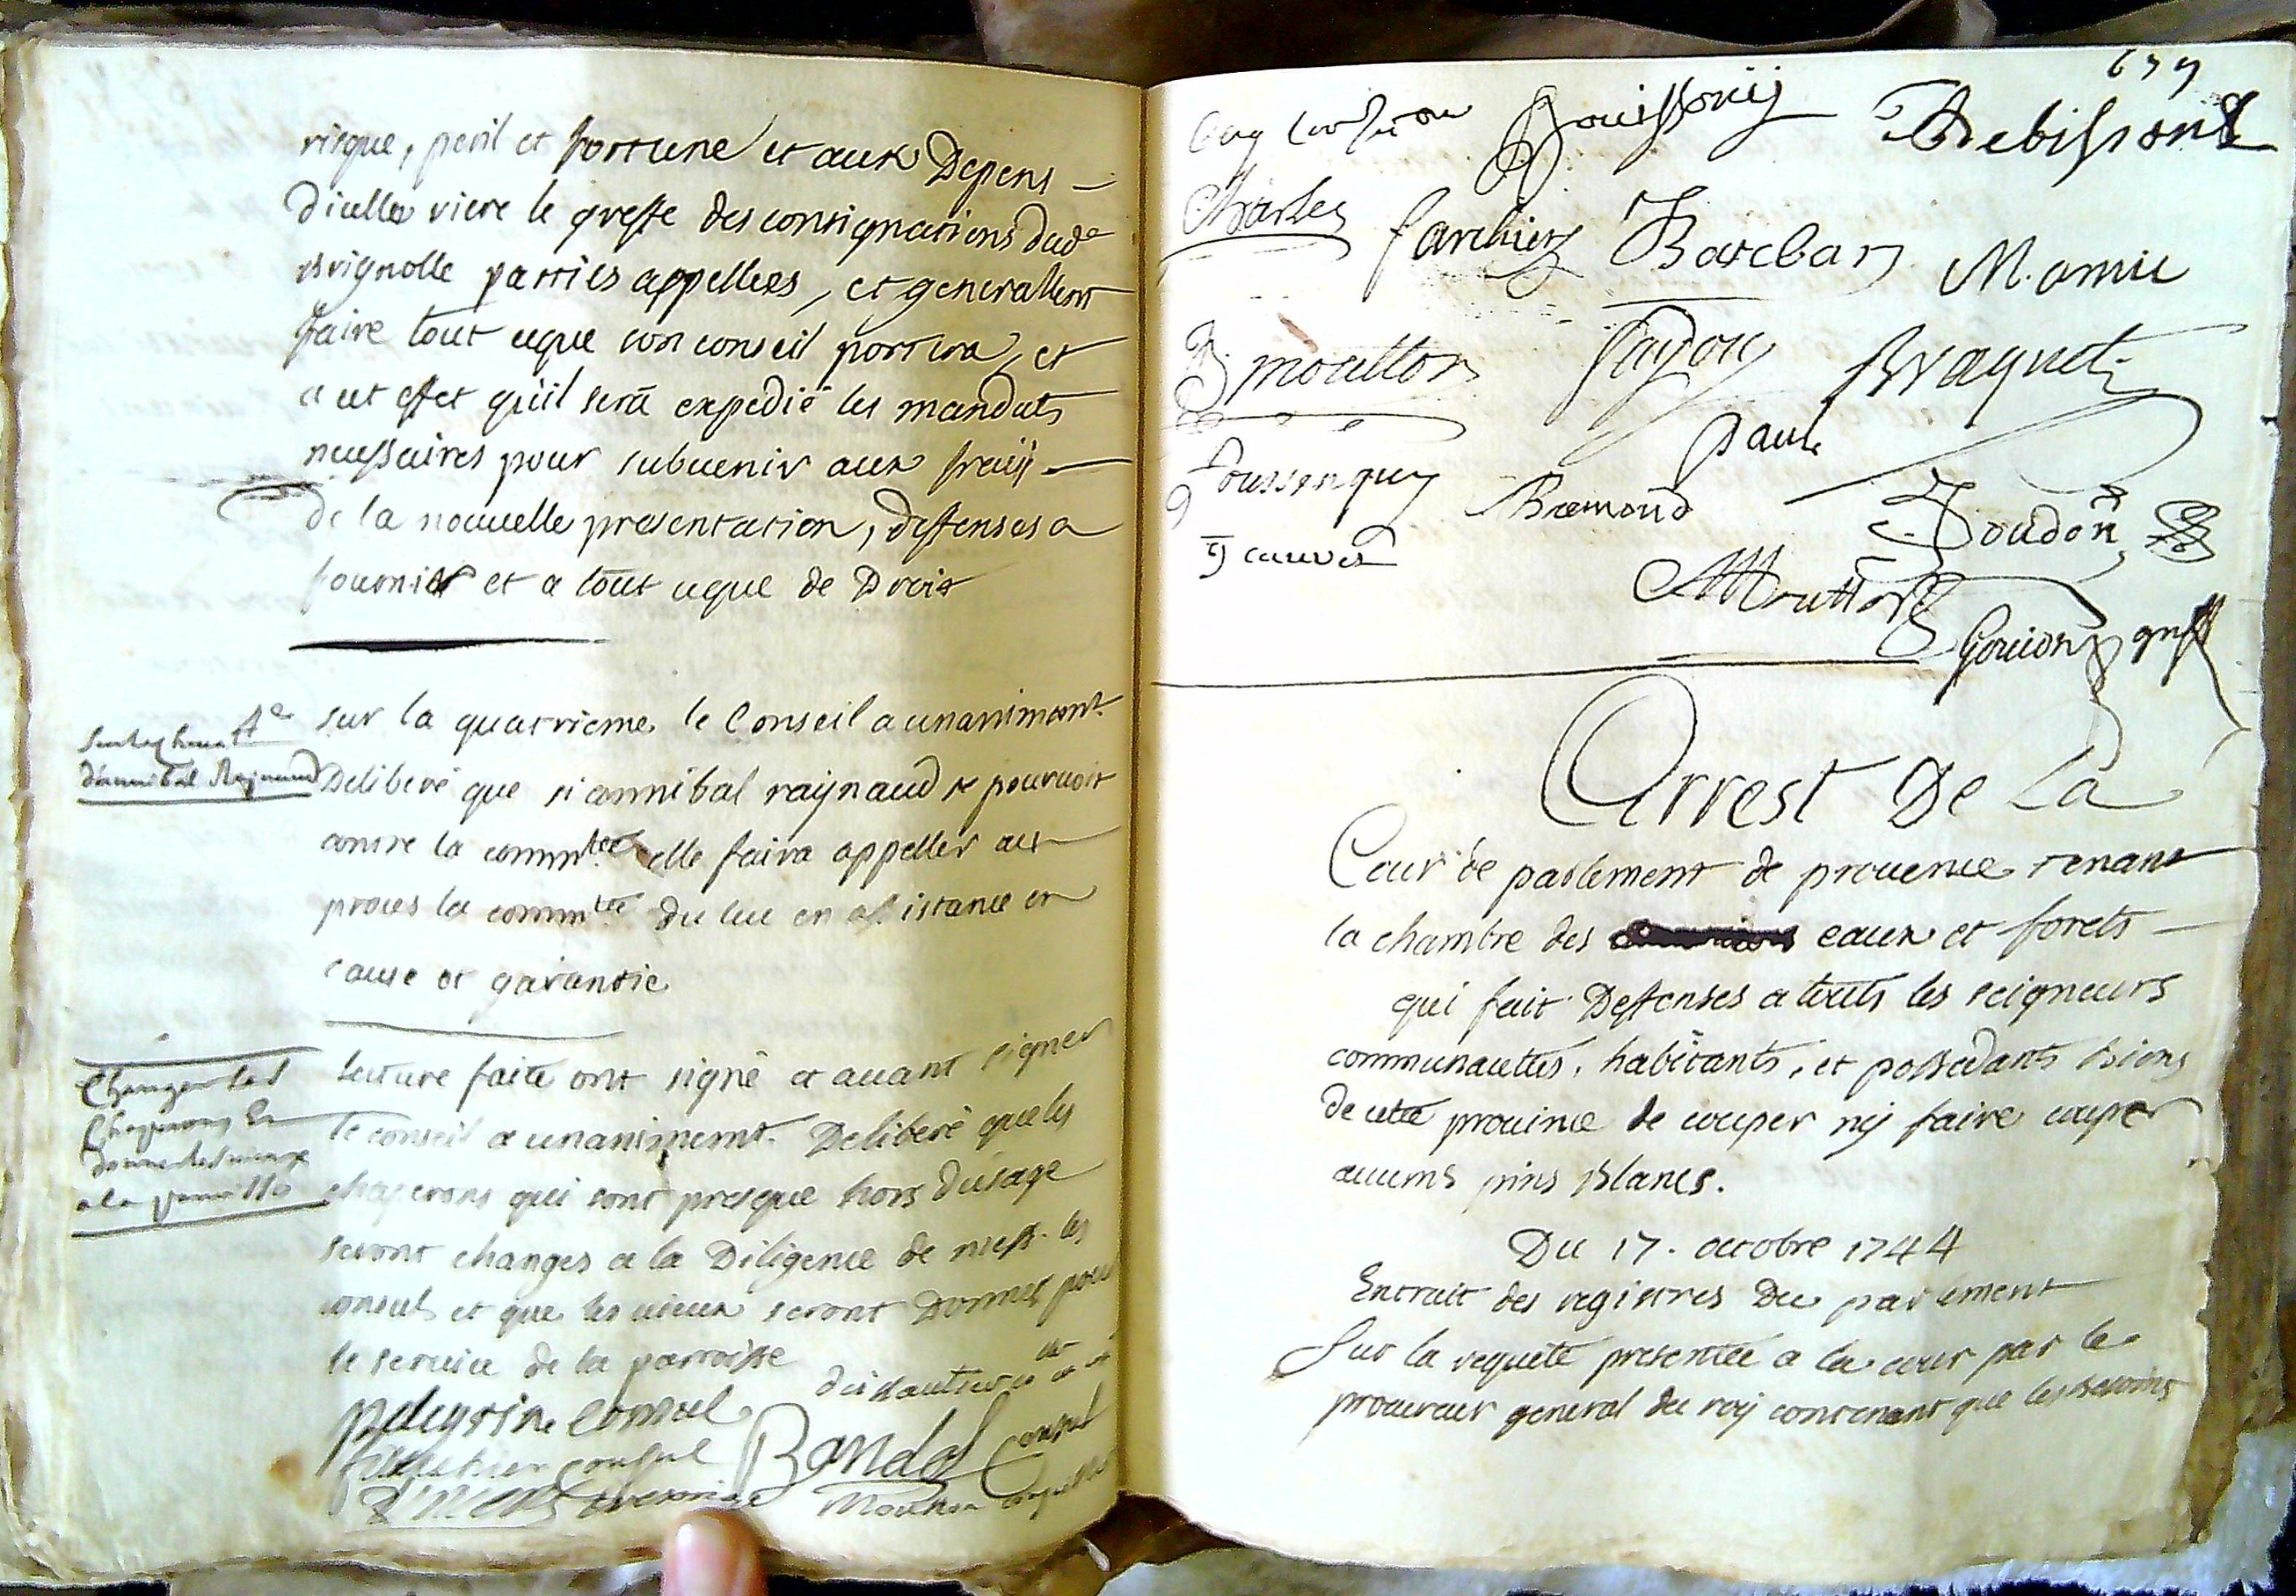 risque, peril et fortune et aux Depens
Dicelle viere le greffe des consignations dud^e
brignolle parties appellees, et generallent
faire tout ceque son conseil portera, et
a cet effet qu'il sera expedié les mandats
necessaires pour subvenir aux fraij
de la nouvelle presentation, deffenses a
fournir et a tout ceque de Droit
sur la quatrieme le Conseil a unanimemt.
Deliberé que si annibal raynaud se pourvoit
d'annibal Raynaud
contre la commté elle faira appeller au
proces la commté du luc en assistance en
cause et garantie
lecture faite ont signé et avant signer
Changer les
Chaperons Et
le conseil a unanimemt. Deliberé que les
donner les vieux
a la parroisse
chaperons qui sont presque hors dusage
seront changes a la Diligence de mess. les
consuls et que les vieux seront Donnes pour
le service de la parroisse
pelegrin Consul
Consul
Bandol Consul
679
Charles
Barclay M. amic
moutton Fayou Braquet
Paul
Poussenquy Remond Joudon
cauvet
Moutton
Gouion greff
Arrest De La
Cour de parlement de provence tenant
la chambre des eaux et forets
qui fait Deffenses a touts les seigneurs
communautes, habitants, et possedants biens
de cette province de couper nij faire couper
aucuns pins Blancs.
Du 17. octobre 1744
Extrait des registres Du parlement
Sur la requete presentée a la cour par le
procureur general du roij contenant que les besoins